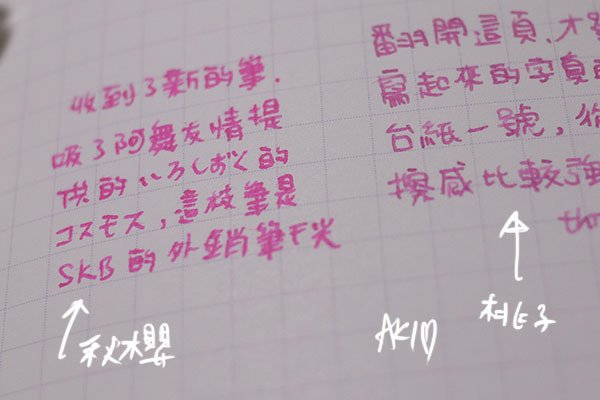 收到了新的筆.
吸了阿舞友情提
供的いろしずく的
コスモス,這枝筆是
SKB的外銷筆干尖
翻開這頁,才
寫起來的字真的
台紙一號,你
擦感比較強
秋櫻
桃子